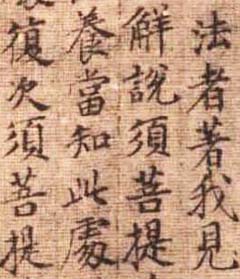 法者著我見
解說須菩提
養當知此處
復次須菩提